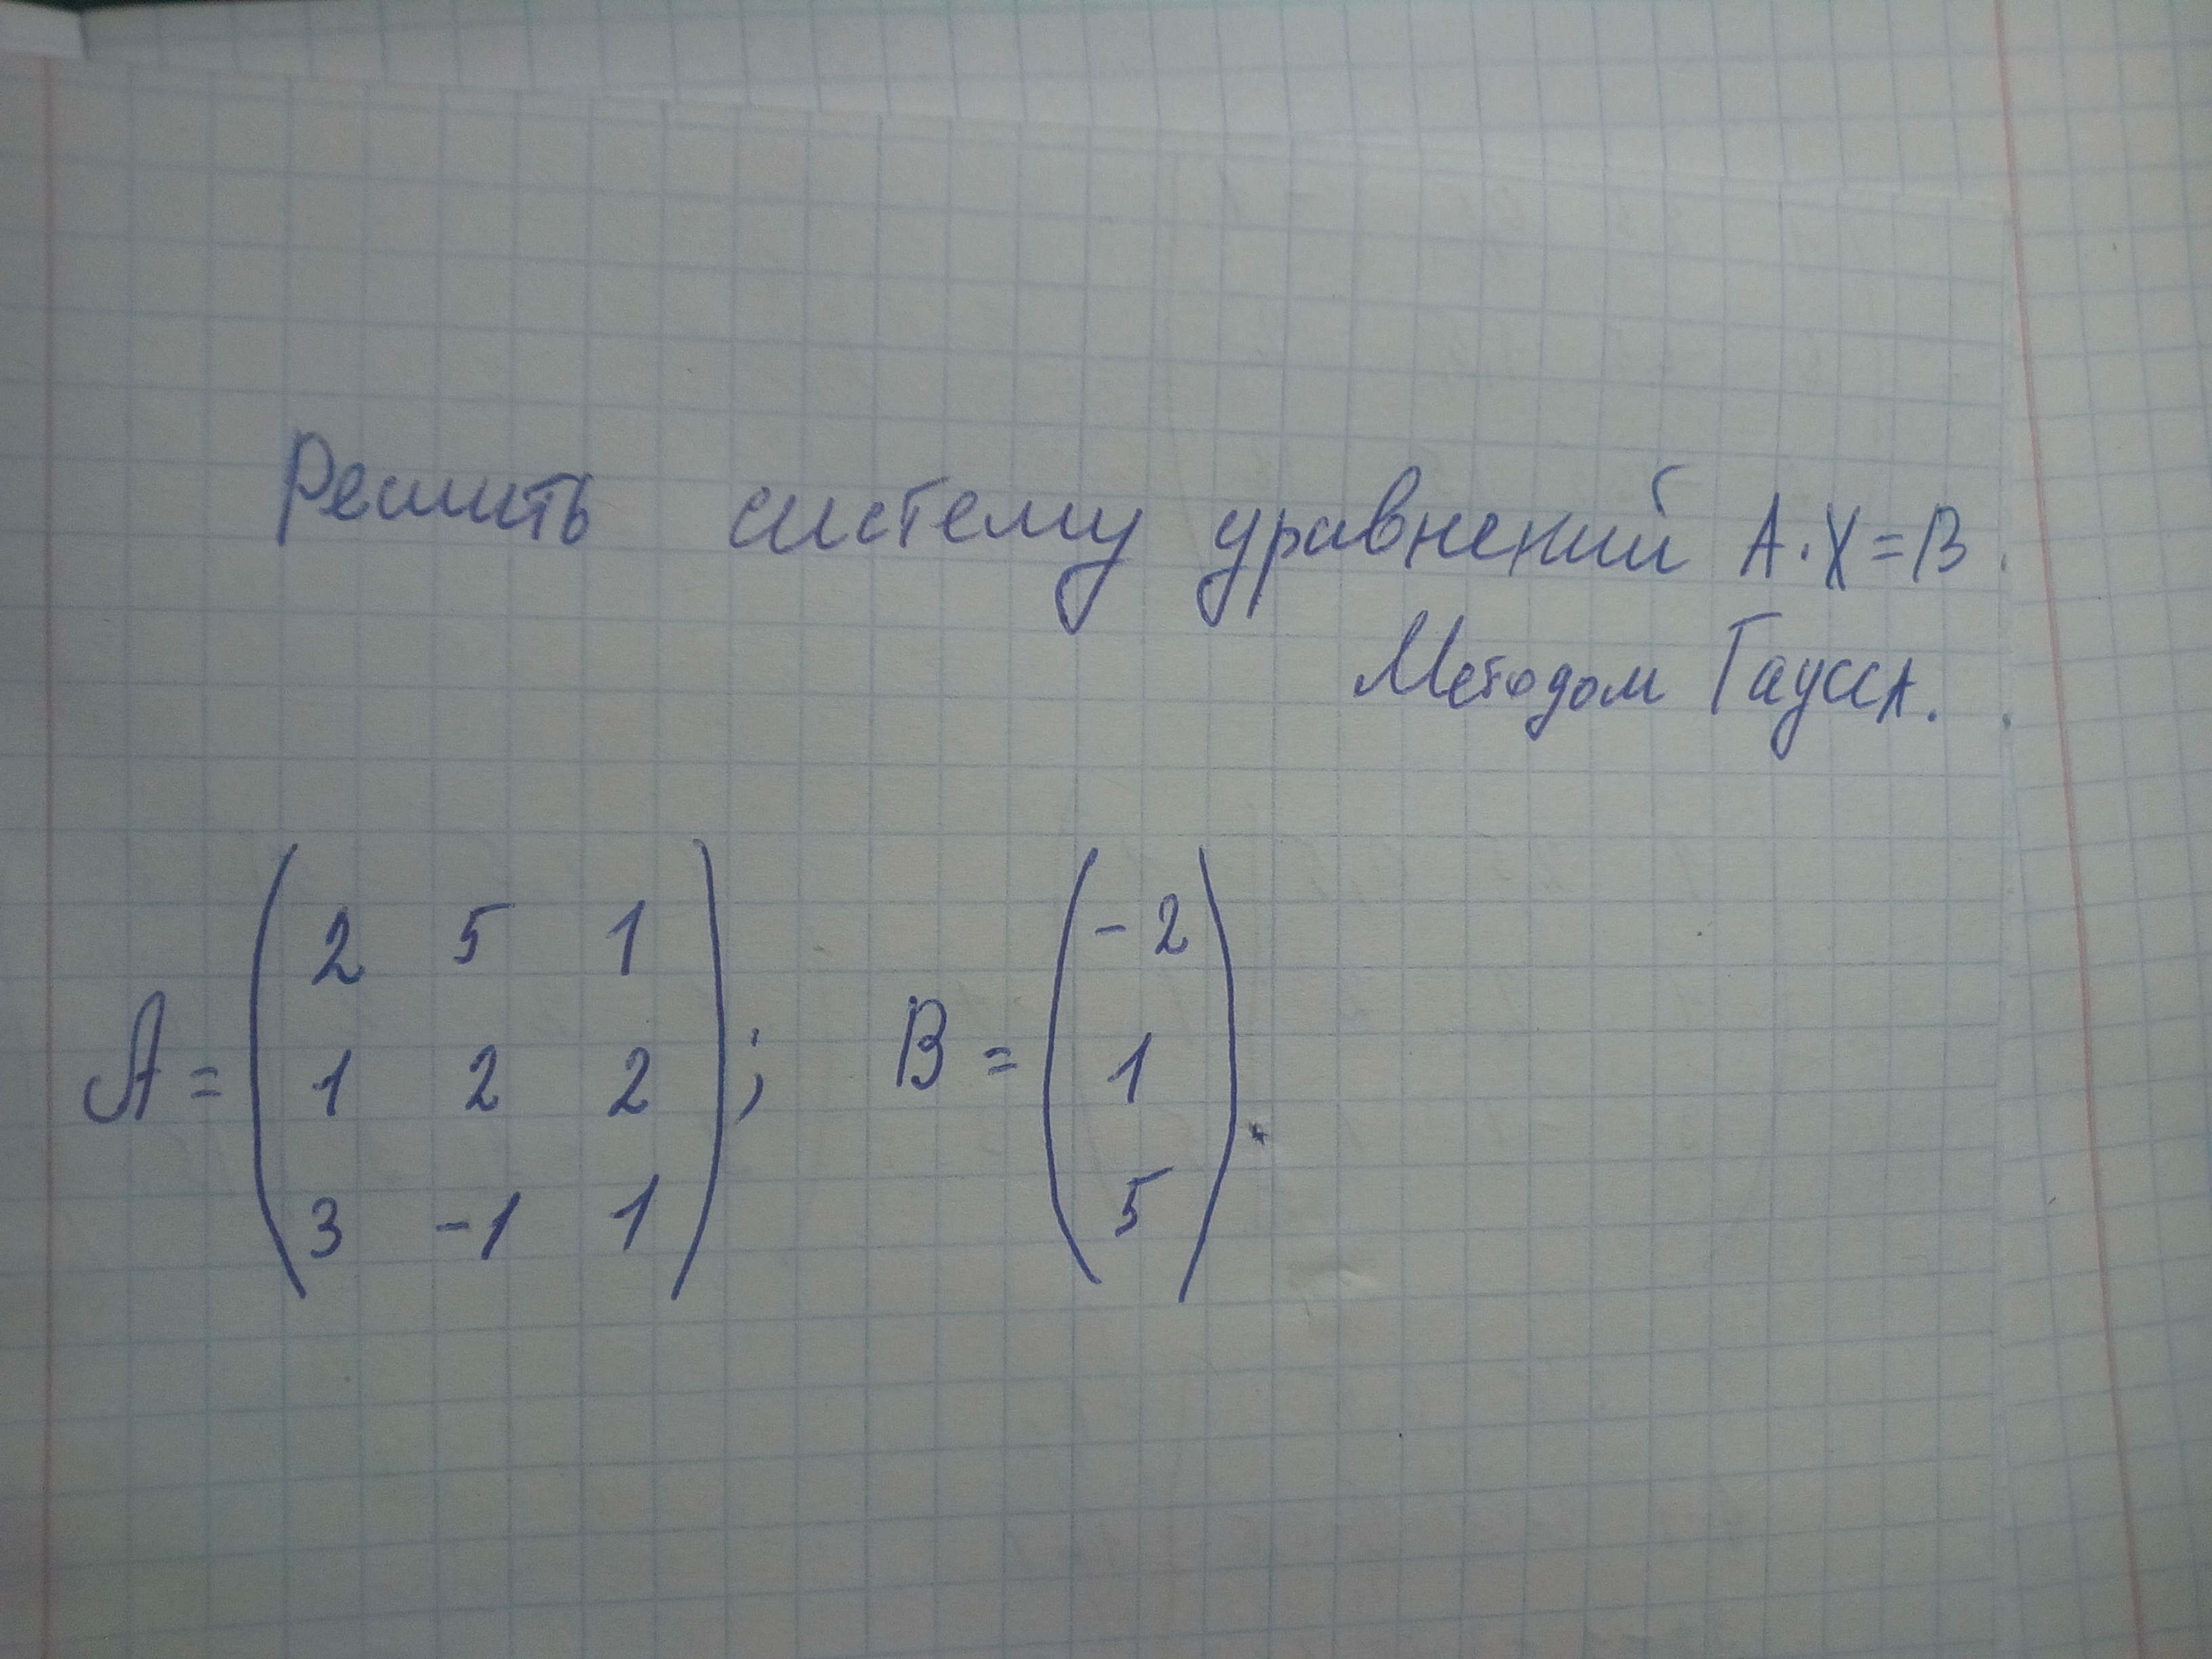 Решить систему уравнений A·X=B.
Методом Гаусса.
2 5 1 -2
A= 1 2 2 ; B= 1 .
3 -1 1 5